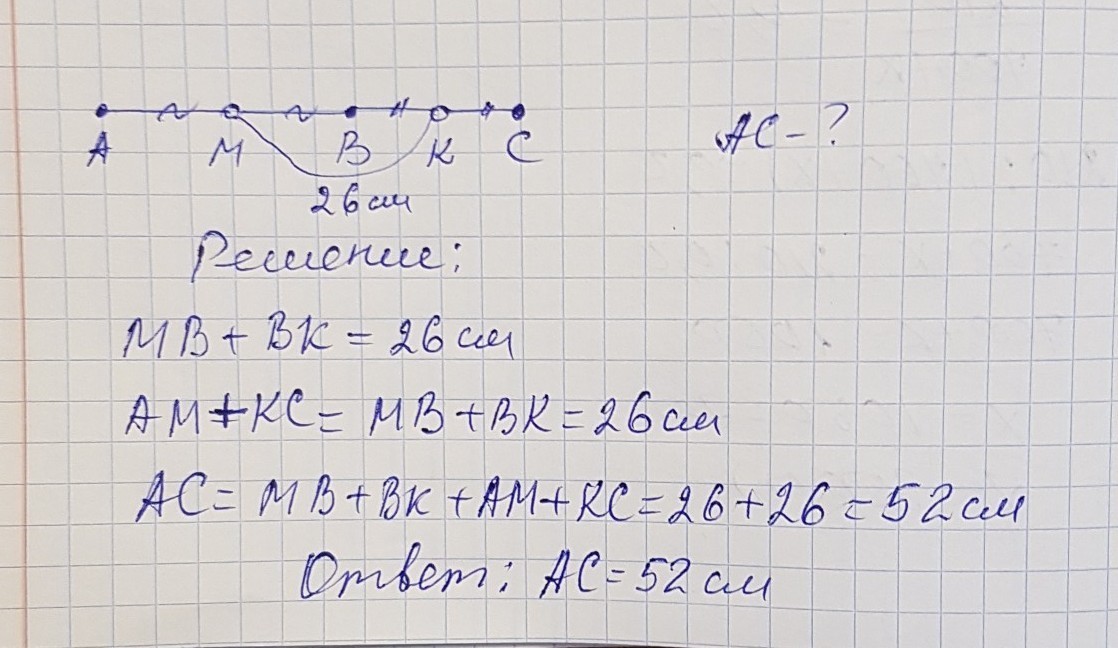 A M B K C
AC-?
26см
Решение:
MB + BK = 26 см
AM + KC = MB + BK = 26 см
AC = MB + BK + AM + KC = 26 + 26 = 52 см
Ответ: AC = 52 см